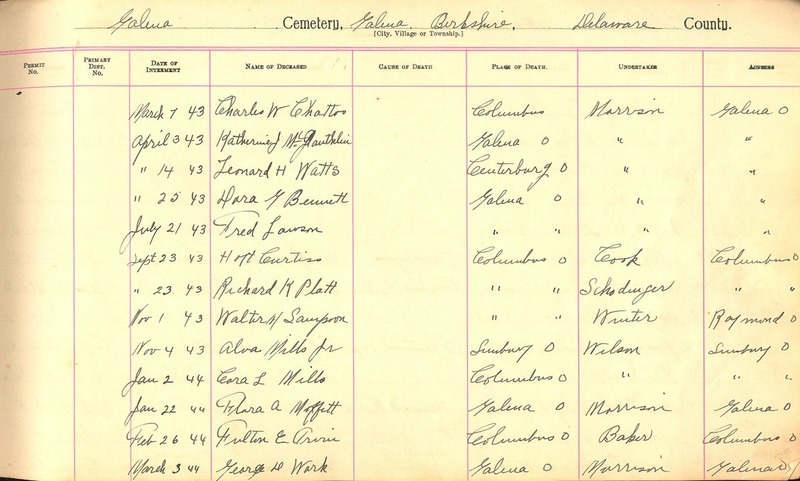 Galena Cemetery, Galena Berkshire, Delaware County.
[City, Village or Township.]
PERMIT No. PRIMARY DIST. No. DATE OF INTERMENT NAME OF DECEASED CAUSE OF DEATH PLACE OF DEATH. UNDERTAKER ADDRESS
March 7 43 Charles W Chattos Columbus Morrison Galena O
April 3 43 Katherine J McGlauthlin Galena O " "
" 14 43 Leonard H Watts Centerburg O " "
" 25 43 Dora G Bennett Galena O " "
July 21 43 Fred Lawson " " " "
Sept 23 43 Hoft Curtiss Columbus O Cook Columbus O
" 23 43 Richard K Platt " " Schodinger " "
Nov 1 43 Walter H Sampson " " Winter Raymond O
Nov 4 43 Alva Mills Jr Sunbury O Wilson Sunbury O
Jan 2 44 Cora L Mills Columbus O " " "
Jan 22 44 Flora A Moffett Galena O Morrison Galena O
Feb 26 44 Fulton E Columbus O Baker Columbus O
March 3 44 George D Work Galena O Morrison Galena O